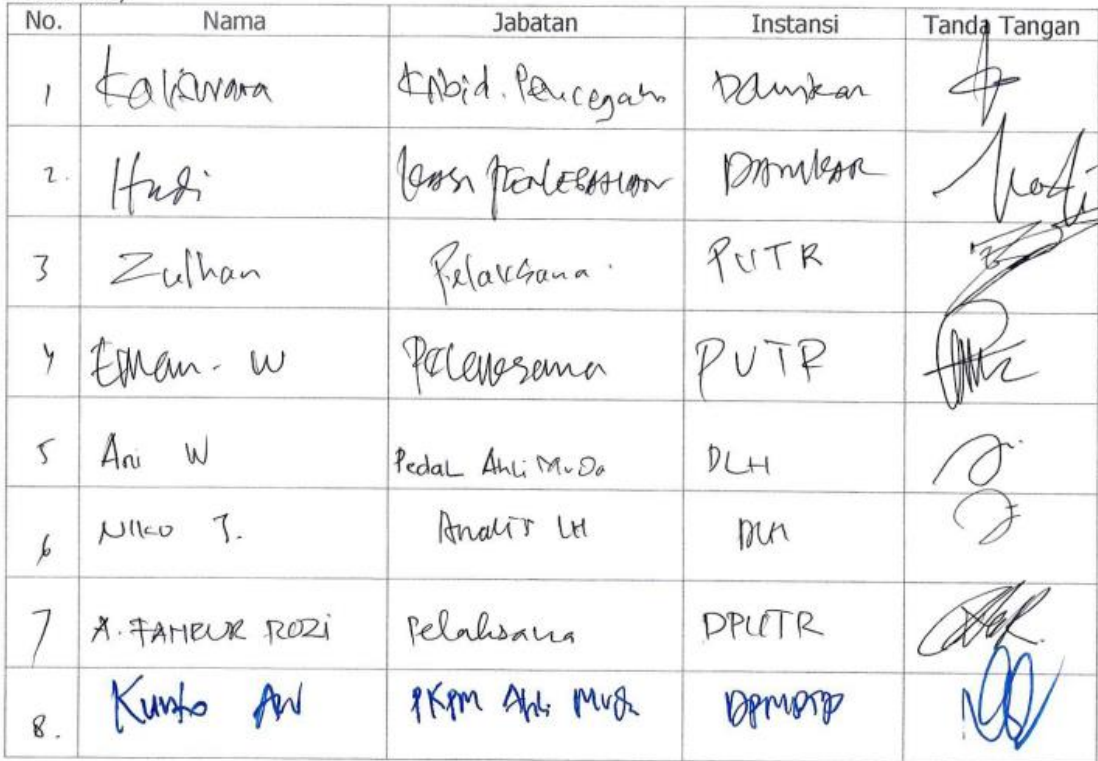 No. Nama Jabatan Instansi Tanda Tangan
1 Kaliwara Kabid. Pencegahn Damkar
2. Hadi Kasi PENCEGAHAN DAMKAR
3 Zulhan Pelaksana. PUTR
4 Eman. W Pelaksana PUTR
5 Ani W Pedal Ahli Muda DLH
6 NIKO J. Analis LH DLH
7 A. ROZI Pelaksana DPUTR
8. Kunto PKPM Ahli Muda DPMPTSP